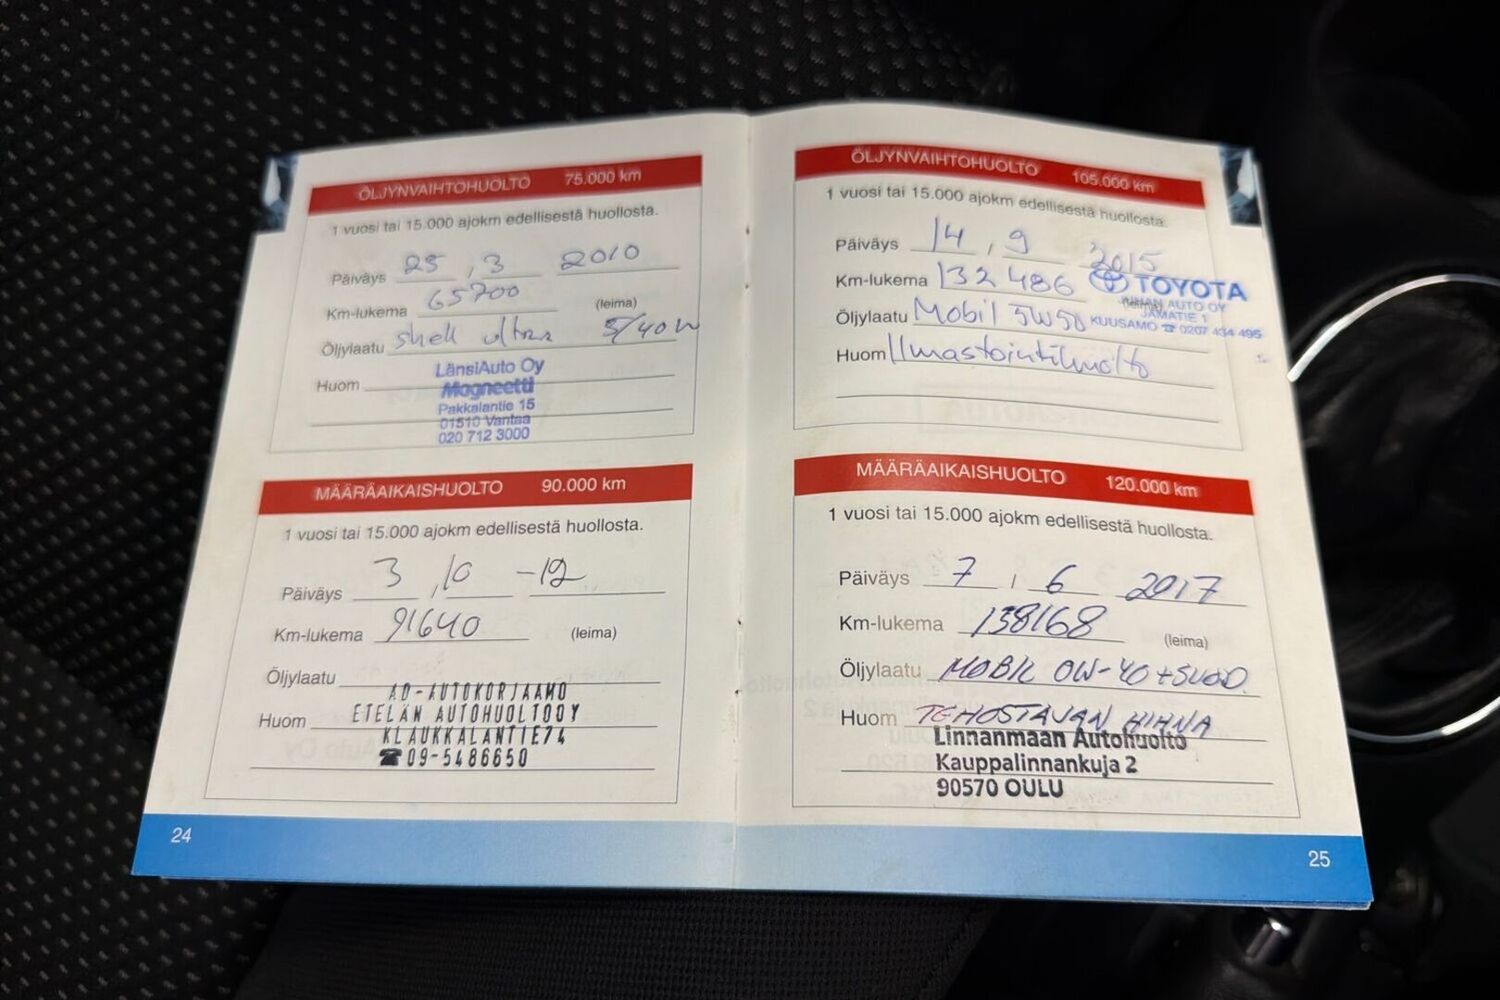 ÖLJYNVAIHTOHUOLTO 75.000 km
1 vuosi tai 15.000 ajokm edellisestä huollosta.
Päiväys 25 , 3 2010
Km-lukema 65700 (leima)
Öljylaatu Shell ultra 5/40W
Huom
LänsiAuto Oy
Magneetti
Pakkalantie 15
01510 Vantaa
020 712 3000
MÄÄRÄAIKAISHUOLTO 90.000 km
1 vuosi tai 15.000 ajokm edellisestä huollosta.
Päiväys 3 , 10 -12
Km-lukema 91640 (leima)
Öljylaatu
Huom
AD-AUTOKORJAAMO
ETELÄN AUTOHUOLTO OY
KLAUKKALANTIE 74
☎ 09-5486650
24
ÖLJYNVAIHTOHUOLTO 105.000 km
1 vuosi tai 15.000 ajokm edellisestä huollosta.
Päiväys 14 , 9 2015
Km-lukema 132486
TOYOTA
AUTO OY
JÄMATIE 1
KUUSAMO ☎ 0207 434 495
Öljylaatu Mobil 5W50
Huom Ilmastointihuolto
MÄÄRÄAIKAISHUOLTO 120.000 km
1 vuosi tai 15.000 ajokm edellisestä huollosta.
Päiväys 7 , 6 2017
Km-lukema 138168 (leima)
Öljylaatu MOBIL 0W-40 + SUOD.
Huom TEHOSTAJAN HIHNA
Linnanmaan Autohuolto
Kauppalinnankuja 2
90570 OULU
25